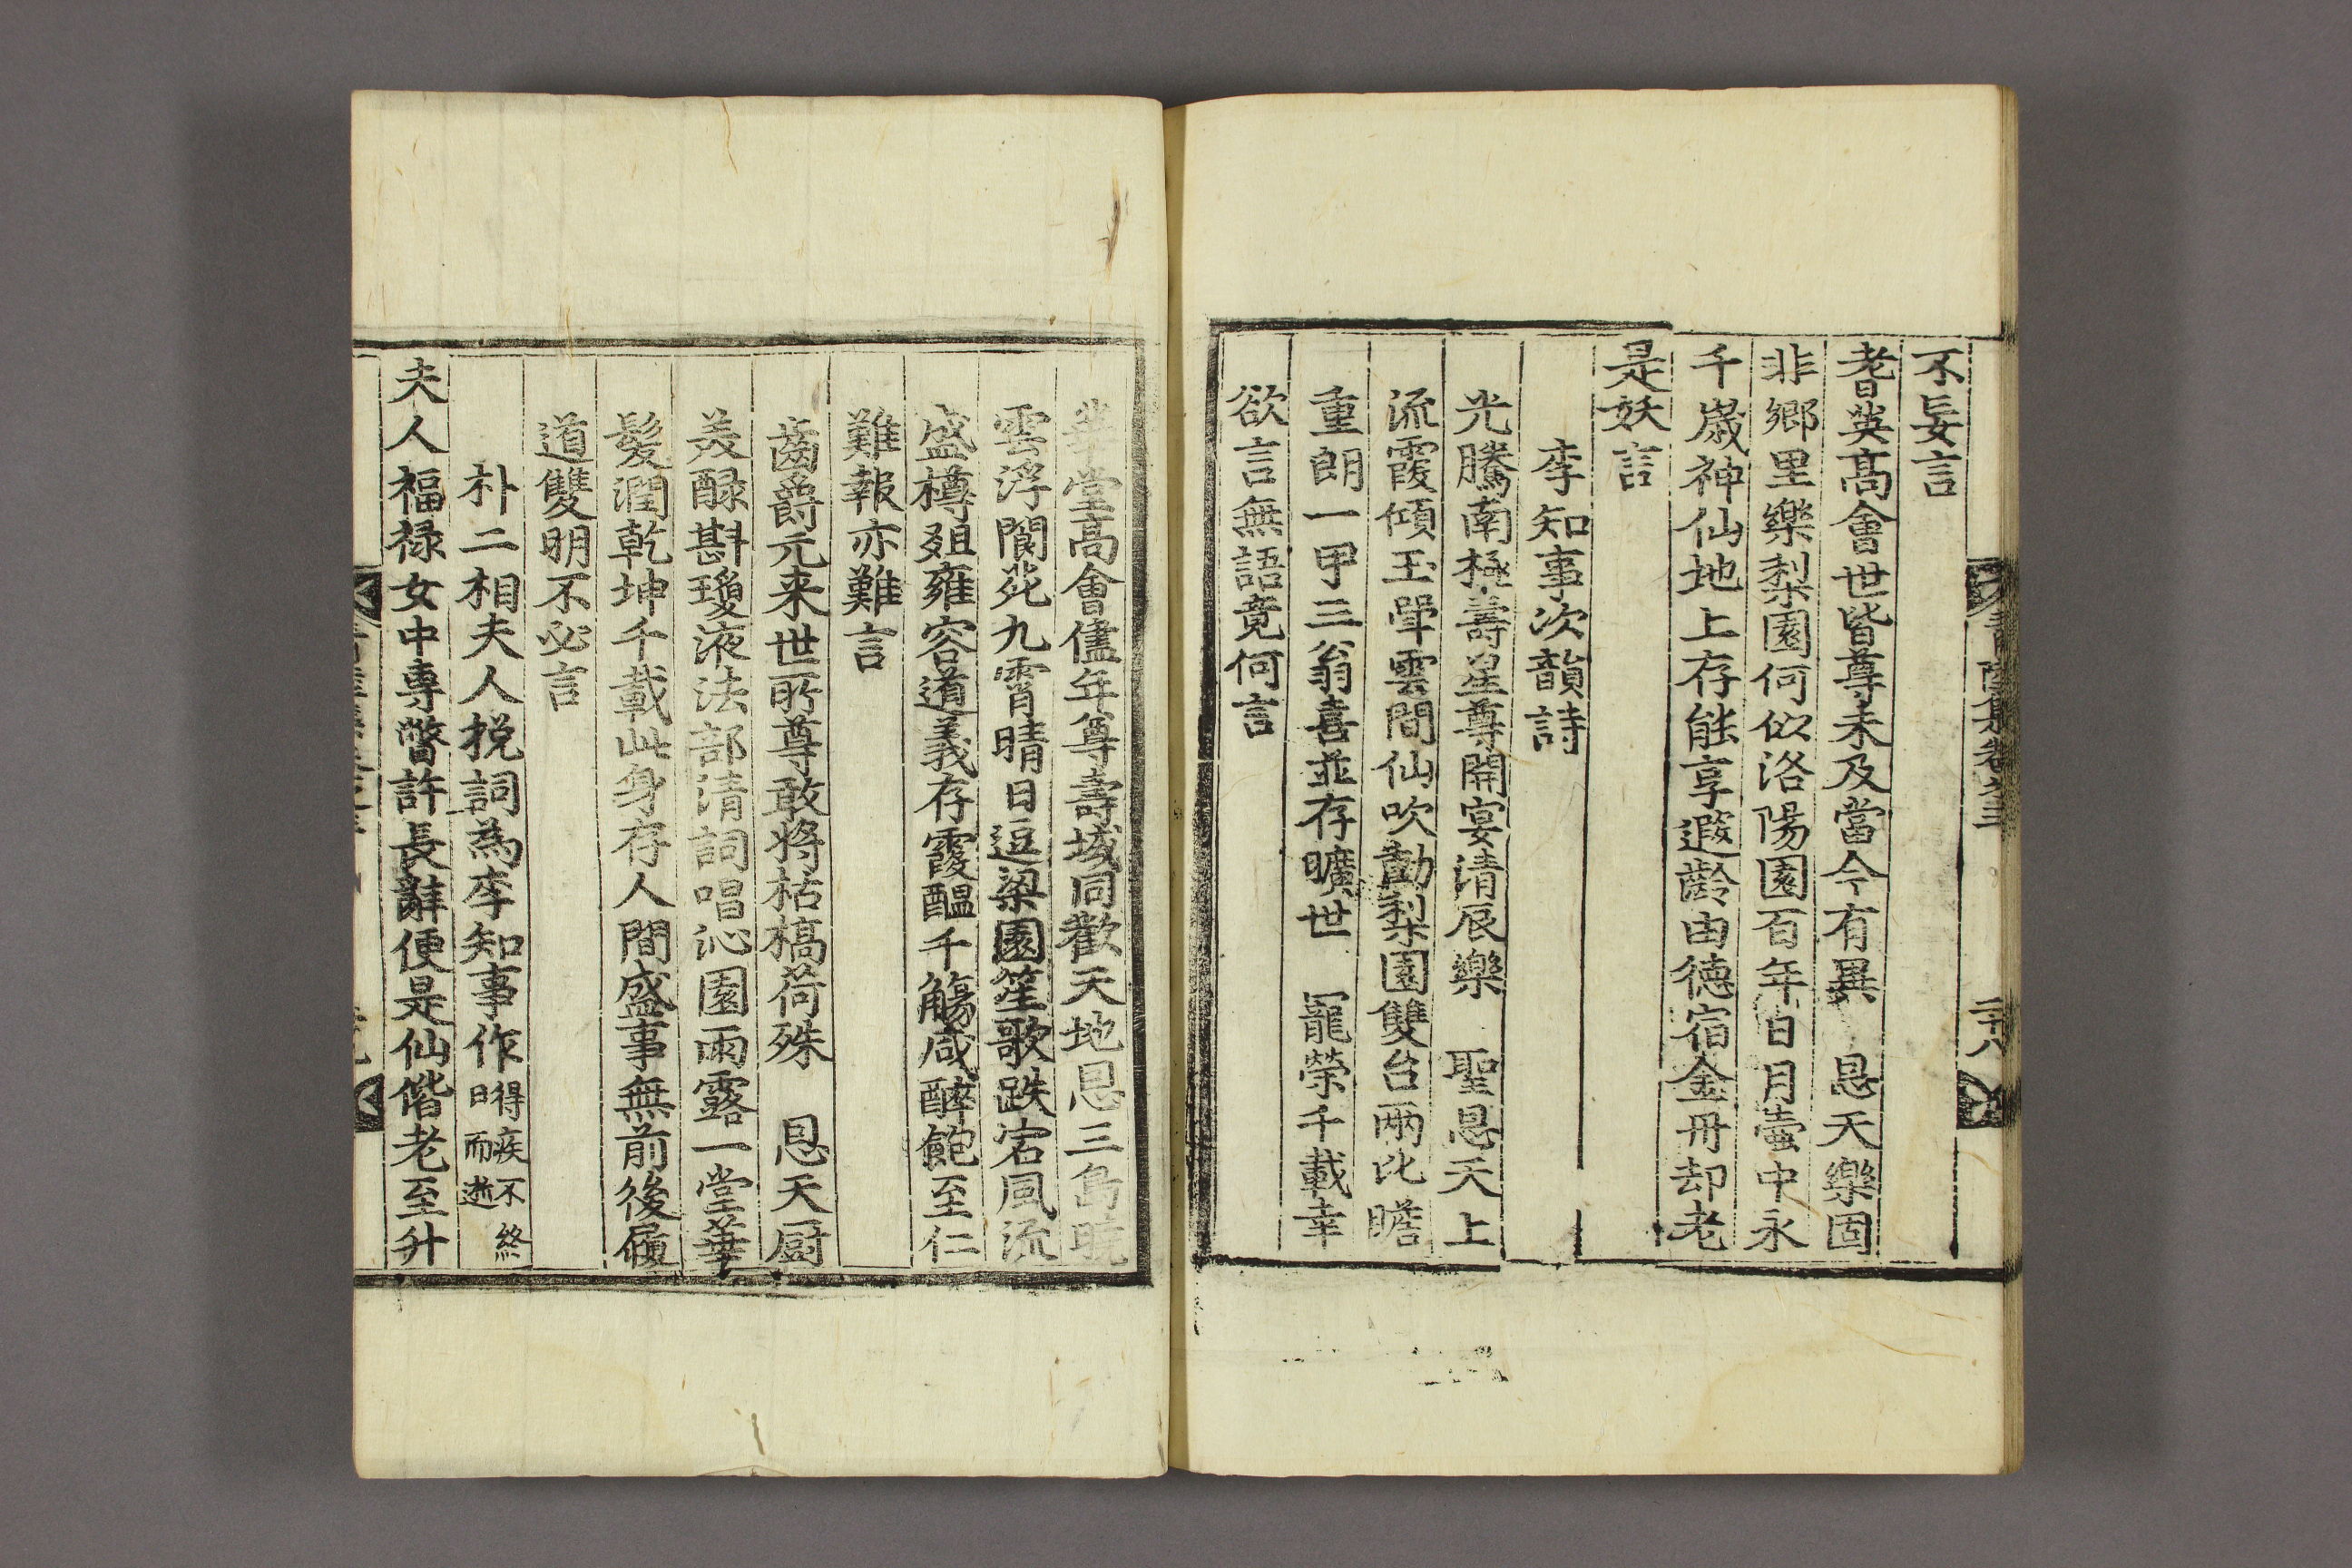 不妄言
耆英高會世皆尊未及當今有異 恩天樂固
非鄉里樂梨園何似洛陽園百年日月壺中永
千歲神仙地上存能享遐齡由德宿金冊却老
是妖言
李知事次韻詩
光騰南極壽星尊開宴淸辰樂 聖恩天上
流霞傾玉斝雲間仙吹勸梨園雙台兩比瞻
重朗一甲三翁喜並存曠世 寵榮千載幸
欲言無語竟何言
二十八
華堂高會儘年尊壽域同歡天地恩三島曉
雲浮閬苑九霄晴日逗梁園笙歌跌宕風流
盛樽俎雍容道義存霞醞千觴咸醉飽至仁
難報亦難言
齒爵元来世所尊敢將枯槁荷殊 恩天厨
羙醁斟瓊液法部清詞唱沁園雨露一堂華
髮潤乾坤千載此身存人間盛事無前後履
道雙明不必言
朴二相夫人挽詞為李知事作得疾不終日而逝
夫人福祿女中專瞥許長辭便是仙偕老至升